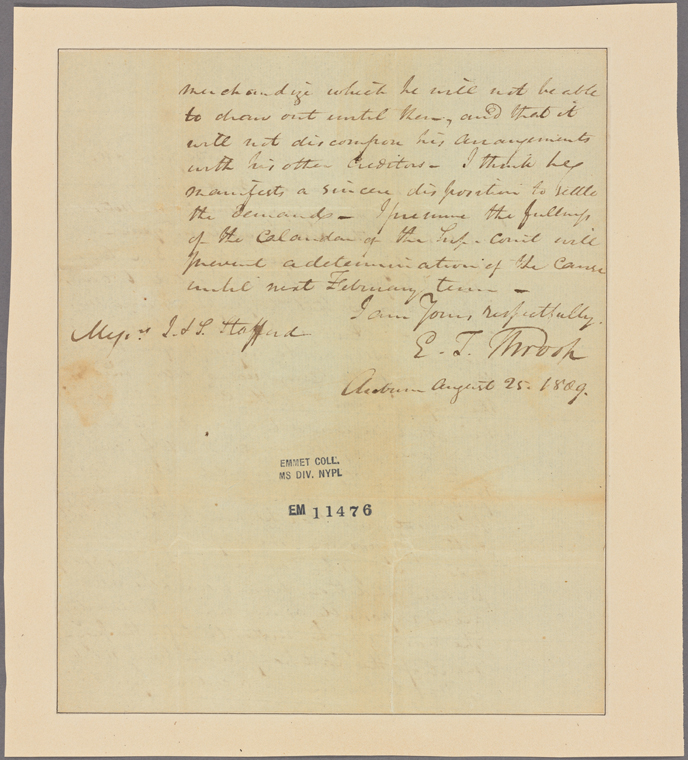 merchandize which he will not be able
to draw out until then, and that it
will not discompose his arrangements
with his other Creditors - I think he
manifests a sincere disposition to settle
the demands - I presume the fullness
of the Calandar of the Sup. Court will
prevent a determination of the Cause
until next February term -
I am Yours respectfully.
Messrs J. & S. Stafford
E. T. Throop
Auburn August 25. 1809.
EMMET COLL.
MS DIV. NYPL
EM 11476